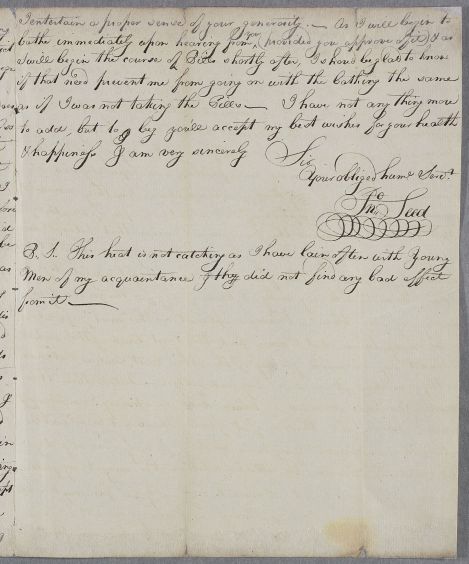 I entertain a proper sense of your generosity. — As I will begin to
bathe immediately upon hearing from you, (provided you approve of it) & as
I will begin the course of Pills shortly after, I shou'd be glad to know
if that need prevent me from going on with the bathing the same
as if I was not taking the Pills — I have not any thing more
to add, but to beg you'll accept my best wishes for your health
& happiness I am very sincerely Sir
Your obliged hum.e Serv.t
Jn.o Seed
P. S. This heat is not catching as I have lain often with Young
Men of my acquaintance & they did not find any bad effect
from it —